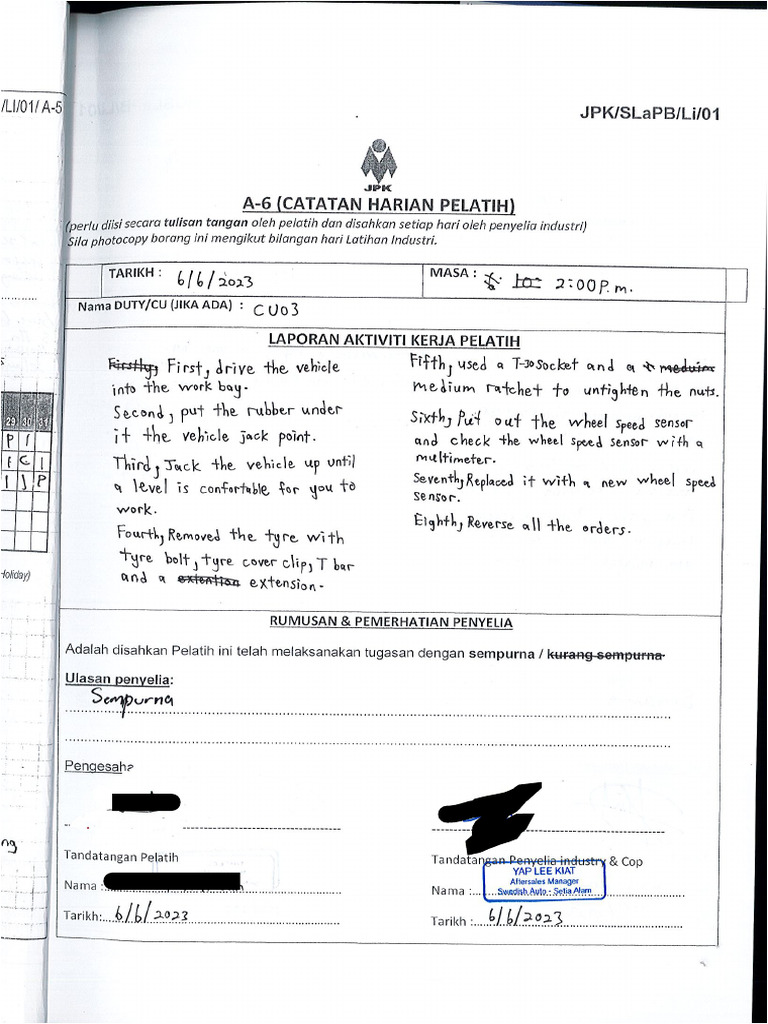 /LI/01/ A-5
JPK/SLaPB/Li/01
JPK
A-6 (CATATAN HARIAN PELATIH)
(perlu diisi secara tulisan tangan oleh pelatih dan disahkan setiap hari oleh penyelia industri)
Sila photocopy borang ini mengikut bilangan hari Latihan Industri.
TARIKH : 6/6/2023
MASA : 2:00 P.m.
Nama DUTY/CU (JIKA ADA) : CU03
LAPORAN AKTIVITI KERJA PELATIH
Firstly, First, drive the vehicle
into the work bay.
Second, put the rubber under
it the vehicle jack point.
Third, Jack the vehicle up until
a level is confortable for you to
work.
Fourth, Removed the tyre with
tyre bolt, tyre cover clip, T bar
and a extention extension.
Fifth, used a T-30 socket and a meduim
medium ratchet to untighten the nuts.
Sixth, Put out the wheel speed sensor
and check the wheel speed sensor with a
multimeter.
Seventh, Replaced it with a new wheel speed
sensor.
Eighth, Reverse all the orders.
29 30 31
Holiday)
RUMUSAN & PEMERHATIAN PENYELIA
Adalah disahkan Pelatih ini telah melaksanakan tugasan dengan sempurna / kurang sempurna
Ulasan penyelia:
Sempurna
Pengesaha
Tandatangan Pelatih
Nama :
Tarikh: 6/6/2023
Tandatangan Penyelia industry & Cop
YAP LEE KIAT
Aftersales Manager
Swedish Auto - Setia Alam
Nama :
Tarikh : 6/6/2023
ng